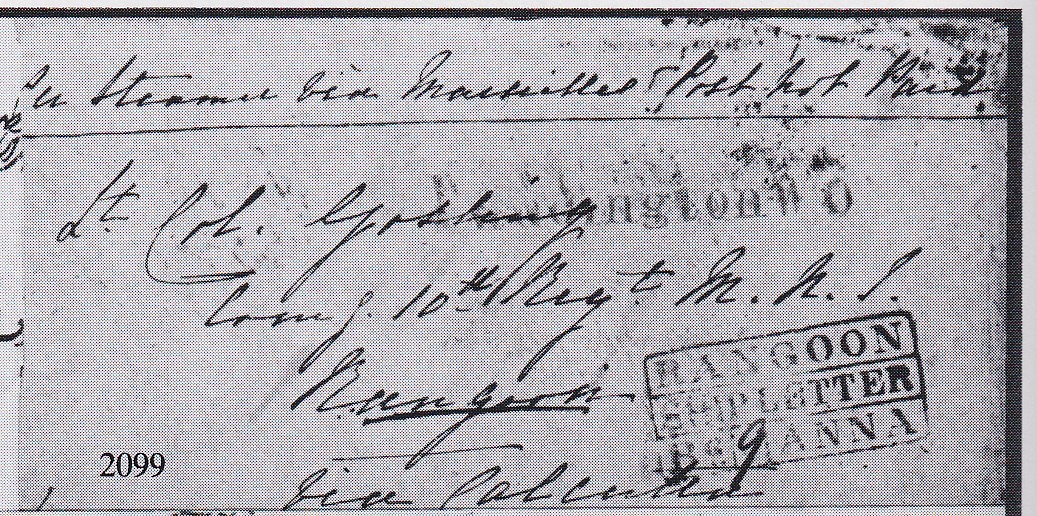 Per Steamer via Marseilles Post not Paid
Lt. Col. Gosling
Comg. 10th Regt M. N. I.
Rangoon
via Calcutta
RANGOON
SHIPLETTER
BEARING ANNA
9
2099